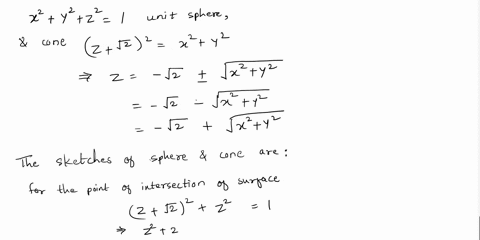 x² + y² + z² = 1 unit sphere,
& cone (z + √2)² = x² + y²
⇒ z = -√2 ± √(x² + y²)
= -√2 - √(x² + y²)
= -√2 + √(x² + y²)
The sketches of sphere & cone are:
for the point of intersection of surface
(z + √2)² + z² = 1
⇒ z² + 2